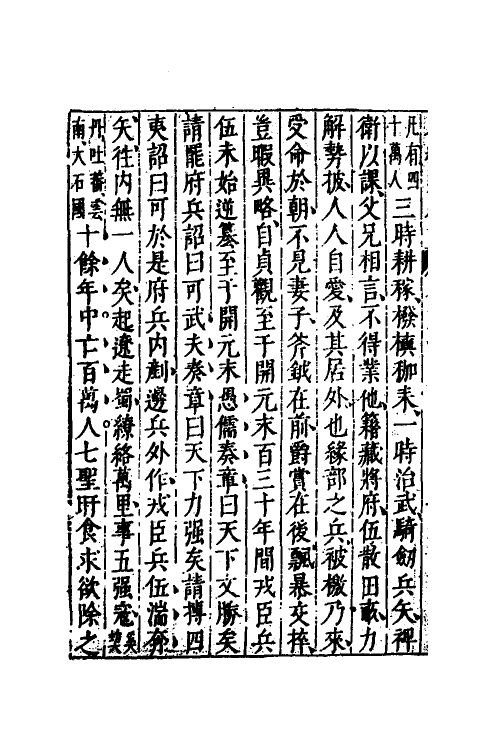 凡有四十萬人三時耕稼、撥槙枷耒、一時治武、騎劒兵矢、裨
衛以課、父兄相言、不得業他、籍藏將府、伍散田畝、力
解勢披、人人自愛、及其居外也、緣部之兵、被檄乃來、
受命於朝、不見妻子、斧鉞在前、爵賞在後、飄暴交捽、
豈暇異略、自貞觀至于開元末百三十年間戎臣兵
伍未始逆簒至于開元末愚儒奏章曰天下文勝矣
請罷府兵詔曰可武夫奏章曰天下力强矣請搏四
夷詔曰可於是府兵内剷邊兵外作、戎臣兵伍湍奔
矢往、内無一人矣、起遼走蜀、繚絡萬里、事五强寇奚契
丹吐蕃雲南大石國十餘年中亡百萬人。七聖旰食求欲除之